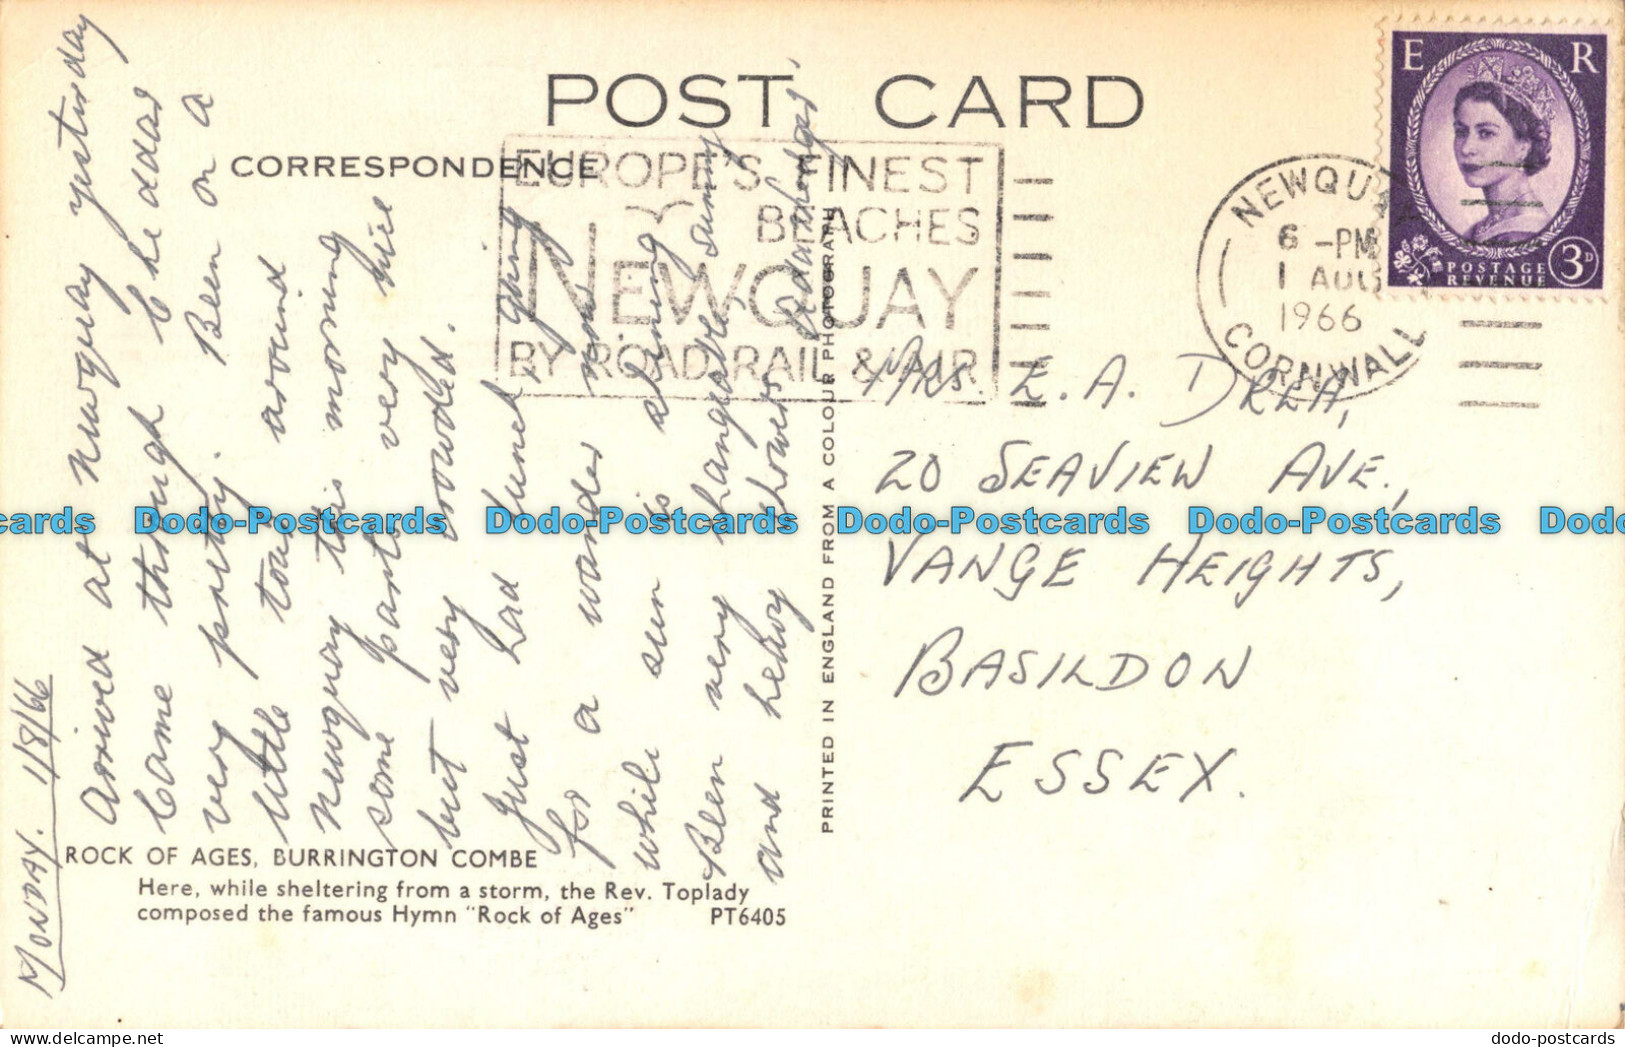 POST CARD
CORRESPONDENCE
EUROPE'S FINEST
BEACHES
NEWQUAY
BY ROAD, RAIL & AIR
NEWQUAY
6 -PM
1 AUG
1966
CORNWALL
E R
POSTAGE
REVENUE
3D
MONDAY. 1/8/66
Arrived at Newquay yesterday
Came through Cheddar
very pretty. Been on a
little tour around
Newquay this morning
some parts very nice
but very crowded.
Just had lunch, going
for a wander now
while sun is shining
Been very changable, sunny
and heavy showers
MRS. E. A. DREA,
20 SEAVIEW AVE.,
VANGE HEIGHTS,
BASILDON
ESSEX.
PRINTED IN ENGLAND FROM A COLOUR PHOTOGRAPH
ROCK OF AGES, BURRINGTON COMBE
Here, while sheltering from a storm, the Rev. Toplady
composed the famous Hymn "Rock of Ages"
PT6405
Dodo-Postcards Dodo-Postcards Dodo-Postcards Dodo-Postcards
dodo-postcards